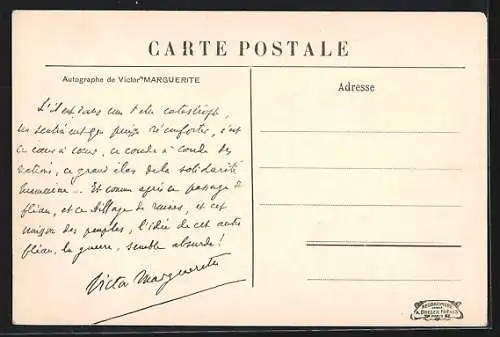 CARTE POSTALE
Autographe de Victor MARGUERITE
Adresse
S'il est dans une telle catastrophe,
un sentiment qui puisse réconforter, c'est
ce cœur à cœur, ce coude à coude des
nations, ce grand élan de la solidarité
humaine... Et comme après ce passage de
fléau, et ce village de ruines, et cette
union des peuples, l'idée de cet autre
fléau, la guerre, semble absurde!
Victor Margueritte